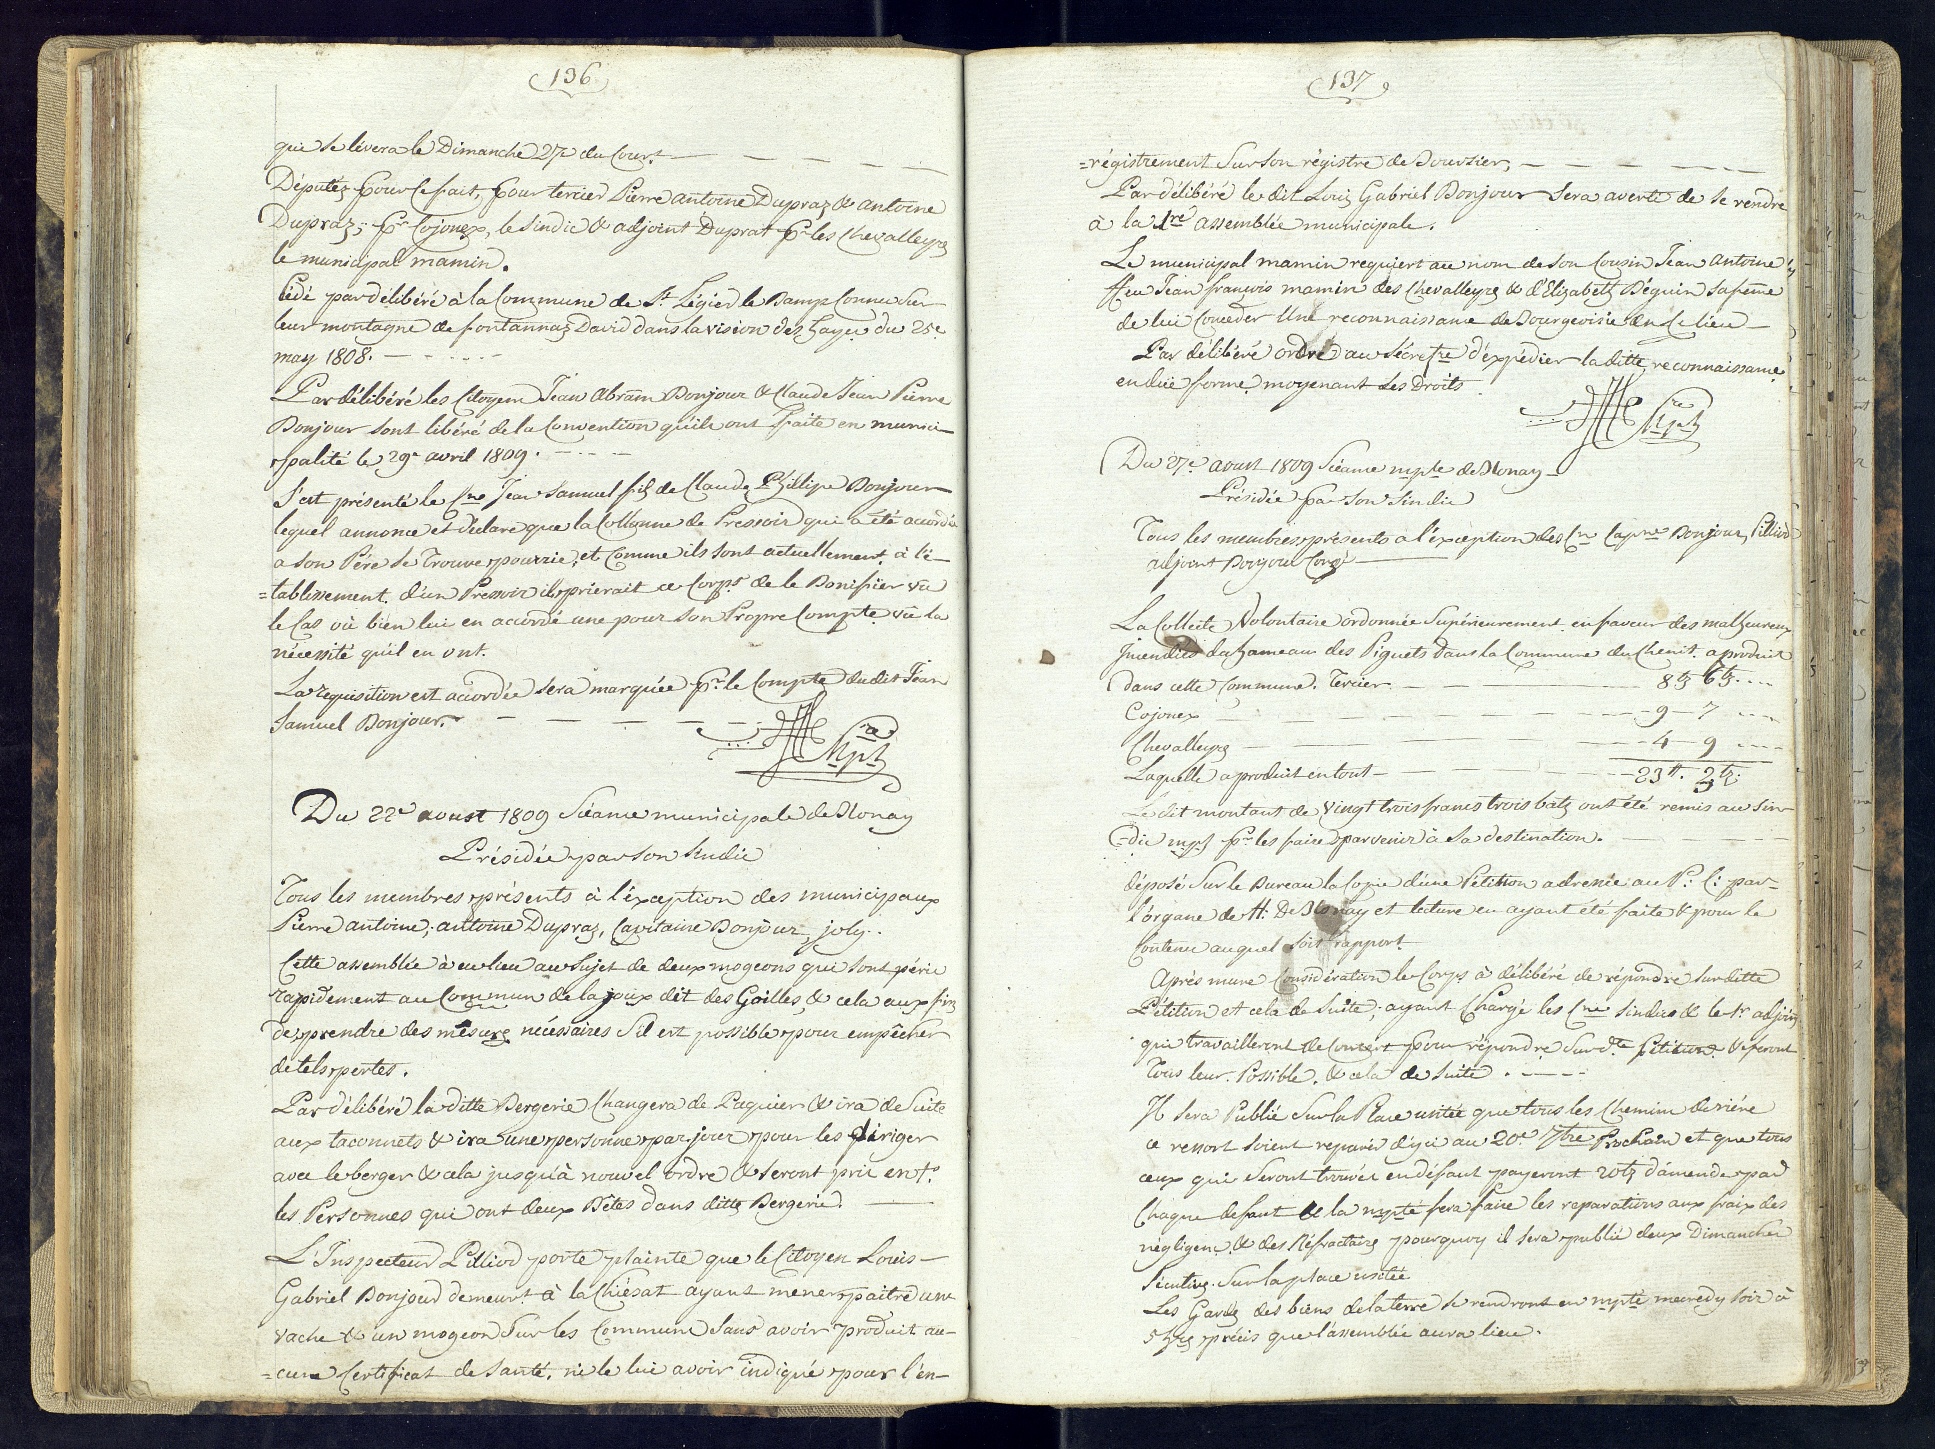 136
qui se lévera le Dimanche 27e du Cour.t
Députés pour ce fait, pour tercier Pierre antoine Dupraz & antoine
Dupraz; pr Cojonex, le sindic & adjoint Duprat pr les Chevalleyres
le municipal mamin.
Cédé par délibéré à la Commune de St Légier le Bamp Connu sur
leur montagne de fontannaz David dans la vision des haÿes du 25e
may 1808.
Par délibéré les Citoyens Jean Abram Bonjour & Claude Jean Pierre
Bonjour sont libéré de la Convention qu'ils ont faite en munici-
palité le 29e avril 1809.
S'est présenté le Cne Jean Samuel fils de Claude Phillipe Bonjour
lequel annonce et déclare que la Collonne de Pressoir qui a été accordée
a son Pére se Trouve pourrie, et comme ils sont actuellement à l'é-
=tablissement d'un Pressoir ils prierait ce Corps de le Bonifier vû
le Cas où bien lui en accordé une pour son Propre Compte vû la
nécessité qu'il en ont.
La requisition est accordée sera marquée pr le Compte dudit Jean
Samuel Bonjour.
Du 22e aoust 1809 Séance municipale de Blonay
Présidée par son Sindic
Tous les membres présents à l'éxception des municipaux
Pierre antoine; antoine Dupraz, Capitaine Bonjour, joly.
Cette assemblée à eu lieu au sujet de deux mogeons qui sont périe
rapidement au Commun de la joux dit des Goilles, & cela aux fins
de prendre des mésures nécéssaires s'il est possible pour empêcher
de tels pertes.
Par délibéré la ditte Bergerie Changera de Paquier & ira de suite
aux taconnets & ira une personne par jour pour les diriger
avec le berger & cela jusqu'à nouvel ordre & seront pris en
les Personnes qui ont deux Bêtes dans ditte Bergerie.
L'Inspecteur Pilliod porte plainte que le Citoyen Louis
Gabriel Bonjour demeurt à la Chiésat ayant mener paitre une
vache & un mogeon sur les Commune sans avoir produit au-
=cune Certificat de santé, ni le lui avoir indiqué pour l'én-
137
=régistrement sur son régistre de Boursier,
Par délibéré le dit Louis Gabriel Bonjour sera averti de se rendre
à la 1re assemblée municipale.
Le municipal mamin requiert au nom de son Cousin Jean Antoine
ffeu Jean françois mamin des Chevalleyres & d'Elizabeth Béguin sa feme
de lui Conceder Une reconnaissance de Bourgeoisie du Ce lieu
Par délibéré ordre au sécretre d'éxpédier la ditte reconnaissance
en due forme moyenant Les Droits
Du 27e aoust 1809 Séance mple de Blonay
Présidée par son Sindic
Tous les membres présents a l'éxception des Cns Capne Bonjour, Pilliod
adjoint Bonjour
La Collecte Volontaire ordonnée Supérieurement en faveur des malheureux
Jncendiés du hameau des Piguets dans la Commune du Chenit a produit
dans cette Commune. Tercier 8 ℔ 6 btz
Cojonex 9 - 7
Chevalleyre 4 - 9
Laquelle a produit en tout 23 ff. 2 btz.
Le dit montant de Vingt trois francs trois batz ont été remis au sin-
=dic mpl pr les faire parvenir à sa destination.
déposé sur le Bureau la Copie d'une Pétition adressée au P: C: par
l'organe de H: De Blonay et lecture en ayant été faite & pour le
Contenu auquel soit rapport.
Après mure Considération le Corps à délibéré de répondre sur ditte
Pétition et cela de Suite, ayant Chargé les Cns sindics & le 1r adjoint
qui travailleront de Concert pour répondre sur dte Pétition & feront
Tous leur Possible. & cela de suite.
Jl sera Publié sur la Place usitée que tous les Chemins dériére
ce ressort soient reparés d'içi au 20e 7bre Prochain et que tous
ceux qui seront trouvés en défaut payeront 20 btz d'amende par
Chaque defaut & la mpté fera faire les reparations aux fraix des
négligens & des Réfractaires pourquoy il sera publié deux Dimanches
sécutive. sur la place usitée
Les Gardes des biens de la terre se rendront en mpté mecredy soir à
5 hres précis que l'assemblée aura lieu.